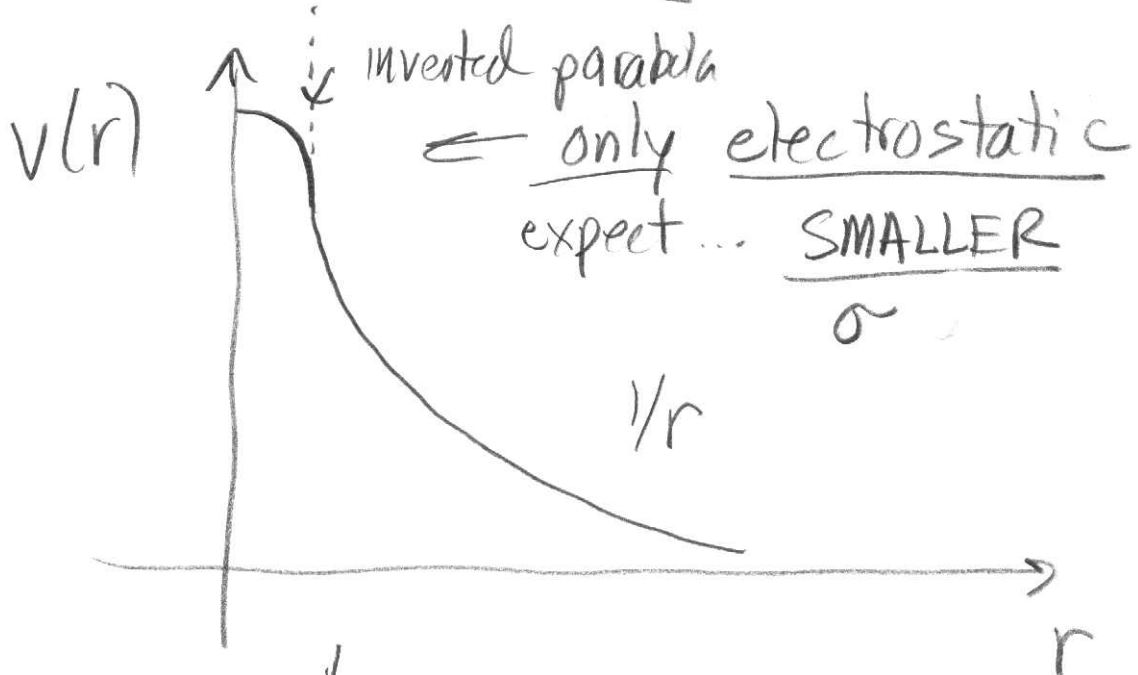 inverted parabola
V(r)
← only electrostatic
expect... SMALLER
σ
1/r
r